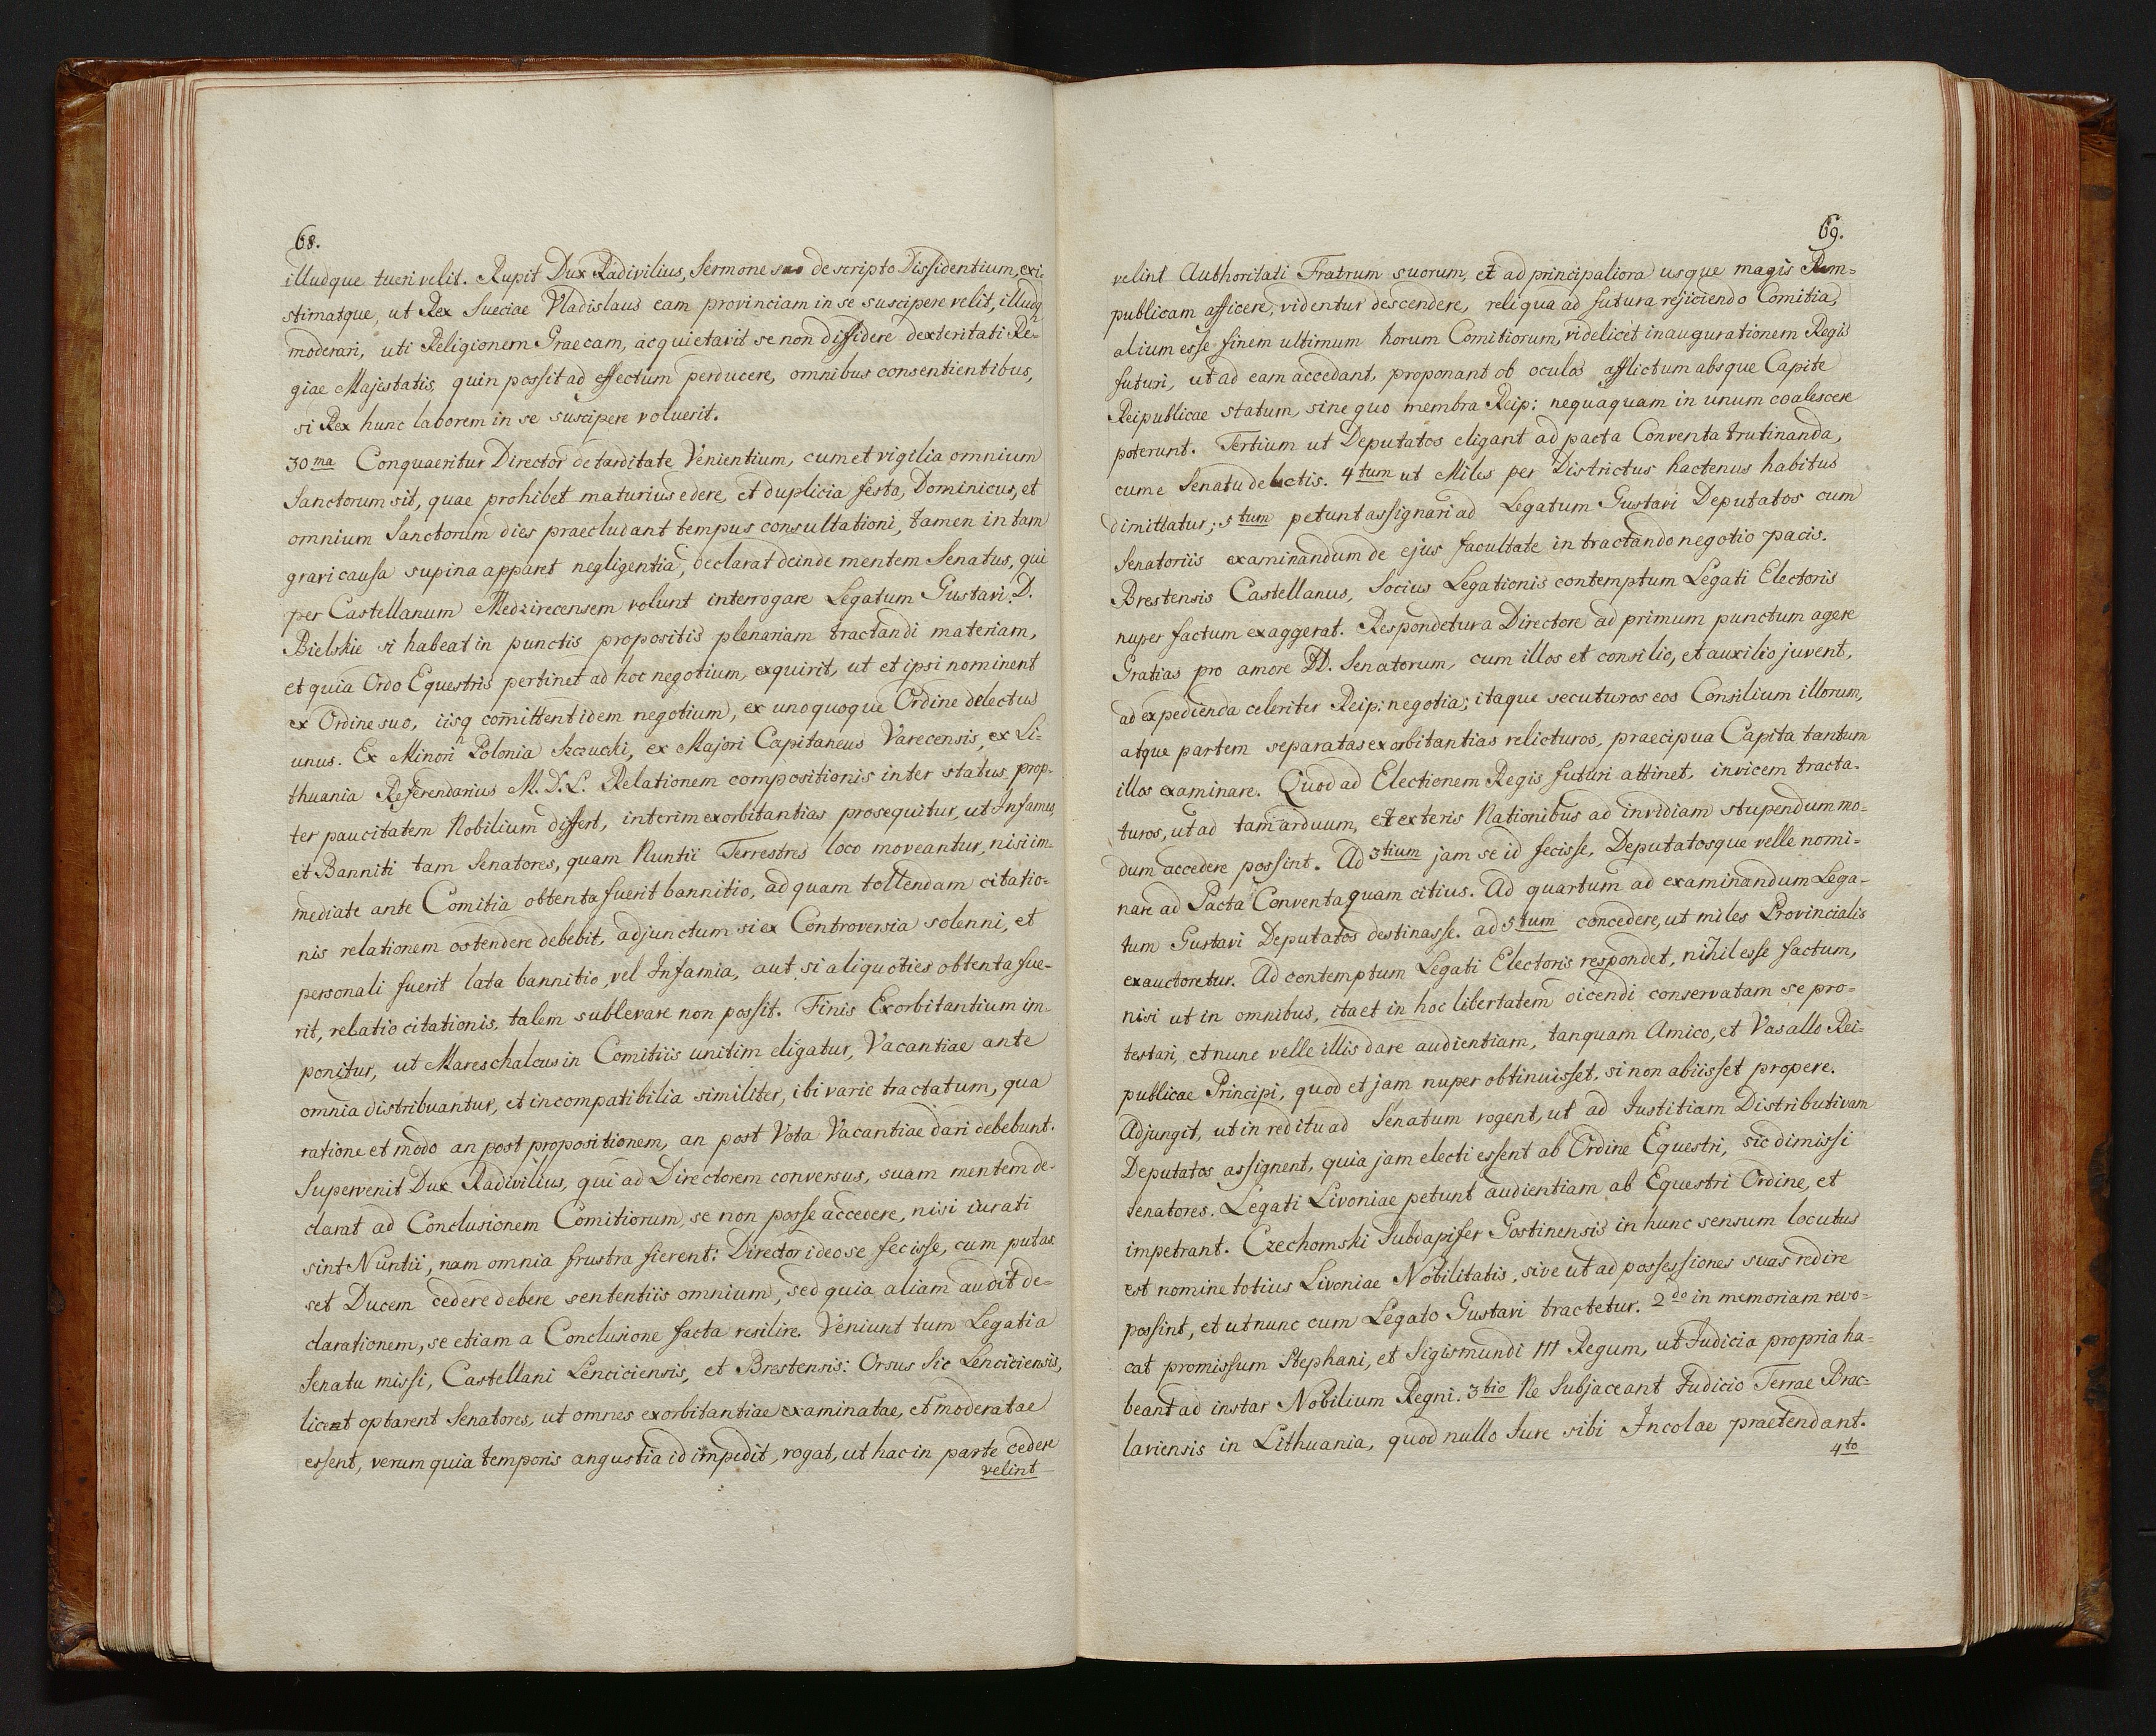 68.
illudque tueri velit. Rupit Dux Radivilius, Sermone suo de scripto Dissidentium, exi-
stimatque, ut Rex Sueciae Vladislaus eam provinciam in se suscipere velit, illudq
moderari, uti Religionem Graecam, acquietavit se non diffidere dexteritati Re-
giae Majestatis quin possit ad effectum perducere, omnibus consentientibus,
si Rex hunc laborem in se suscipere voluerit.
30ma Conquaeritur Director de tarditate Venientium, cum et vigilia omnium
Sanctorum sit, quae prohibet maturius edere, et duplicia festa, Dominicus, et
omnium Sanctorum dies praecludant tempus consultationi, tamen in tam
gravi causa supina apparet negligentia, declarat deinde mentem Senatus, qui
per Castellanum Medzirecensem volunt interrogare Legatum Gustavi. D.
Bielskie si habeat in punctis propositis plenariam tractandi materiam,
et quia Ordo Equestris pertinet ad hoc negotium, exquirit, ut et ipsi nominent
ex Ordine suo, iisq comittent idem negotium, ex unoquoque Ordine delectus
unus. Ex Minori Polonia Szczucki, ex Majori Capitaneus Varecensis, ex Li-
thuania Referendarius M. D. L. Relationem compositionis inter status prop-
ter paucitatem Nobilium differt, interim exorbitantias prosequitur, ut Infames,
et Banniti tam Senatores, quam Nuntii Terrestres loco moveantur, nisi im-
mediate ante Comitia obtenta fuerit bannitio, ad quam tollendam citatio-
nis relationem ostendere debebit, adjunctum si ex Controversia solenni, et
personali fuerit lata bannitio, vel Infamia, aut si aliquoties obtenta fue-
rit, relatio citationis, talem sublevare non possit. Finis Exorbitantium im-
ponitur, ut Mareschalcus in Comitiis unitim eligatur, Vacantiae ante
omnia distribuantur, et incompatibilia similiter, ibi varie tractatum, qua
ratione et modo an post propositionem, an post Vota Vacantiae dari debebunt.
Supervenit Dux Radivilius, qui ad Directorem conversus, suam mentem de-
clarat ad Conclusionem Comitiorum, se non posse accedere, nisi iurati
sint Nuntii, nam omnia frustra fierent: Director ideo se fecisse, cum putas
set Ducem cedere debere sententiis omnium, sed quia aliam audit de-
clarationem, se etiam a Conclusione facta resilire. Veniunt tum Legati a
Senatu missi, Castellani Lenciciensis, et Brestensis: Orsus Sic Lenciciensis,
licet optarent Senatores, ut omnes exorbitantiae examinatae, et moderatae
essent, verum quia temporis angustia id impedit, rogat, ut hac in parte cedere
velint
69.
velint Authoritati Fratrum suorum, et ad principaliora usque magis Rem-
publicam afficere, videntur descendere, reliqua ad futura rejiciendo Comitia,
alium esse finem ultimum horum Comitiorum, videlicet inaugurationem Regis
futuri, ut ad eam accedant, proponant ob oculos afflictum absque Capite
Reipublicae statum, sine quo membra Reip: nequaquam in unum coalescere
poterunt. Tertium ut Deputatos eligant ad pacta Conventa trutinanda,
cum e Senatu delectis. 4tum ut Miles per Districtus hactenus habitus
dimittatur; 5tum petunt assignari ad Legatum Gustavi Deputatos cum
Senatoriis examinandum de ejus facultate in tractando negotio pacis.
Brestensis Castellanus, Socius Legationis contemptum Legati Electoris
nuper factum exaggerat. Respondetur a Directore ad primum punctum agere
Gratias pro amore DD. Senatorum, cum illos et consilio, et auxilio juvent,
ad expedienda celeriter Reip: negotia; itaque secuturos eos Consilium illorum,
atque partem separatas exorbitantias relicturos, praecipua Capita tantum
illos examinare. Quod ad Electionem Regis futuri attinet, invicem tracta-
turos, ut ad tam arduum, et exteris Nationibus ad invidiam stupendum mo-
dum accedere possint. Ad 3tium jam se id fecisse, Deputatosque velle nomi-
nare ad Pacta Conventa quam citius. Ad quartum ad examinandum Lega-
tum Gustavi Deputatos destinasse. ad 5tum concedere, ut miles Provincialis
exauctoretur. Ad contemptum Legati Electoris respondet, nihil esse factum,
nisi ut in omnibus, ita et in hoc libertatem dicendi conservatam se pro-
testari, et nunc velle illis dare audientiam, tanquam Amico, et Vasallo Rei-
publicae Principi, quod et jam nuper obtinuisset, si non abiisset propere.
Adjungit, ut in reditu ad Senatum rogent, ut ad Justitiam Distributivam
Deputatos assignent, quia jam electi essent ab Ordine Equestri, sic dimissi
senatores. Legati Livoniae petunt audientiam ab Equestri Ordine, et
impetrant. Czechomski Subdapifer Gostinensis in hunc sensum locutus
est nomine totius Livoniae Nobilitatis, sive ut ad possessiones suas redire
possint, et ut nunc cum Legato Gustavi tractetur. 2do in memoriam revo-
cat promissum Stephani, et Sigismundi III Regum, ut Judicia propria ha-
beant ad instar Nobilium Regni. 3tio Ne Subjaceant Judicio Terrae Brac-
laviensis in Lithuania, quod nullo Jure sibi Incolae praetendant.
4to